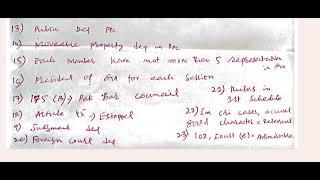 13) Public Deq PPC
14) Moveable property deq in PPC
15) Each Member have not more than 5 representation in GA
16) President of GA for each session
17) 175 (B) → Pak Bar Council
18) Article 15 → Estoppel
9) Judgment deq
20) Foreign Court deq
21) Rules in 1st Schedule
22) Im cri cases, accused good character = Relevant
23) 102, Exist (e) = Admissible